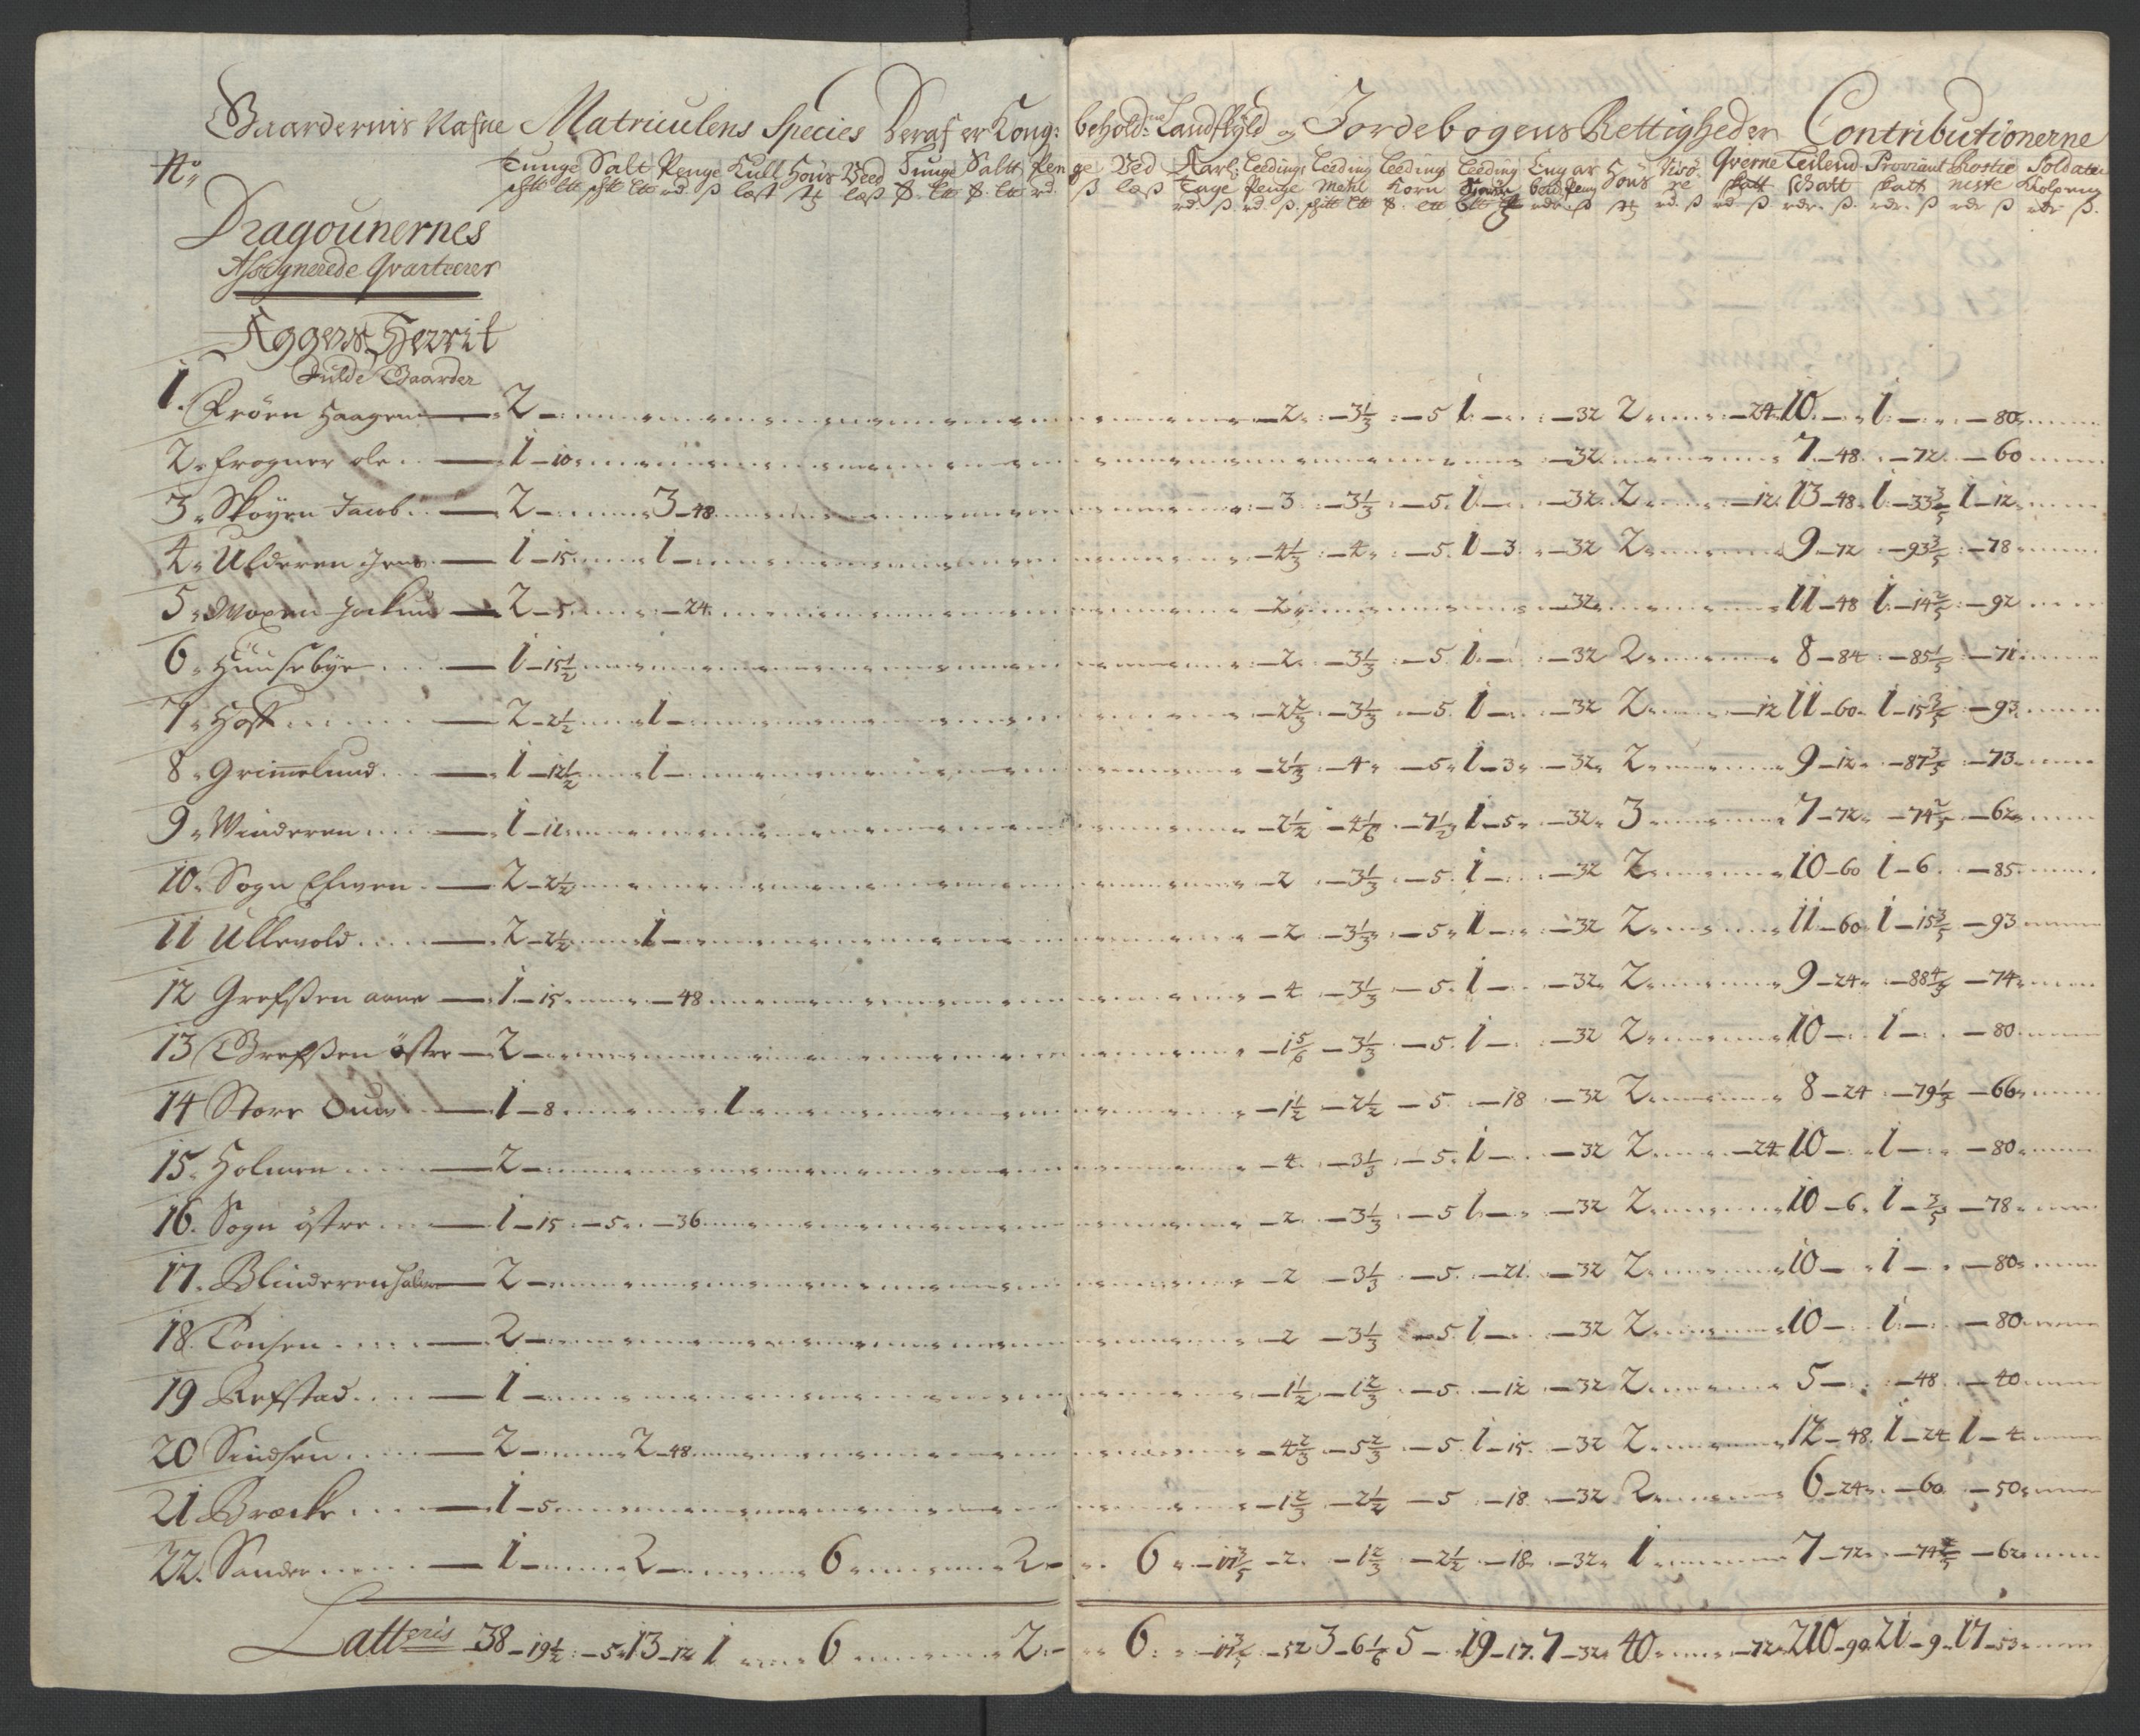 Gaardernis Nafne Matriculens Species Deraf er Kong: behold:ne Landskyld og Jordebogens Rettigheder Contributionerne
No Tunge Salt Penge Kull Höns Veed Tunge Saltt Penge Ved Aarl: Leedings Leeding Leeding Leeding Engar Höns Visö- Qverne Leilend Proviant Rostie Soldater
Tage Penge Mehl Korn re skatt Schatt skatt neste
Dragounernes
Assignerede Qvarteerer
Aggers Herrit
Fulde Gaarder
1. Fröen Haagen 2 - 2 - 3 1/3 - 5 1 - 32 2 - 24 10 1 - 80
2. Frogner ole 1 - 10 - 32 7 - 48 - 72 - 60
3. Sköyen Jacob 2 3 - 48 - 3 - 3 1/3 - 5 1 - 32 2 - 12 13 - 48 1 - 33 3/5 1 - 12
4. Ulderen Jens 1 - 15 1 - 4 1/3 - 4 - 5 1 - 3 - 32 2 9 - 72 - 93 3/5 - 78
5. Woxen Jockum 2 - 5 - 24 - 2 - 32 11 - 48 1 - 14 2/5 - 92
6. Huusebye 1 - 15 1/2 - 2 - 3 1/3 - 5 1 - 32 2 8 - 84 - 85 1/5 - 71
7. Hoff 2 - 2 1/2 1 - 2 2/3 - 3 1/3 - 5 1 - 32 2 - 12 11 - 60 1 - 15 3/5 - 93
8. Grimelund 1 - 12 1/2 1 - 2 1/3 - 4 - 5 1 - 3 - 32 2 9 - 12 - 87 3/5 - 73
9. Winderen 1 - 11 - 2 1/2 - 4 1/6 - 7 1/2 1 - 5 - 32 3 7 - 72 - 74 2/5 - 62
10. Sogn Elwen 2 - 2 1/2 - 2 - 3 1/3 - 5 1 - 32 2 10 - 60 1 - 6 - 85
11 Ullevold 2 - 2 1/2 1 - 2 - 3 1/3 - 5 1 - 32 2 11 - 60 1 - 15 3/5 - 93
12 Grefsen arne 1 - 15 - 48 - 4 - 3 1/3 - 5 1 - 32 2 9 - 24 - 88 4/5 - 74
13 Grefsen östre 2 - 1 5/6 - 3 1/3 - 5 1 - 32 2 10 1 - 80
14 Store Ouer 1 - 8 1 - 1 1/2 - 2 1/2 - 5 - 18 - 32 2 8 - 24 - 79 1/5 - 66
15. Holmen 2 - 4 - 3 1/3 - 5 1 - 32 2 - 24 10 1 - 80
16. Sogn östre 1 - 15 - 5 - 36 - 2 - 3 1/3 - 5 1 - 32 2 10 - 6 1 - 3/5 - 78
17. Blinderen 2 - 2 - 3 1/3 - 5 - 21 - 32 2 10 1 - 80
18. Tonsen 2 - 2 - 3 1/3 - 5 1 - 32 2 10 1 - 80
19 Refstad 1 - 1 1/2 - 1 2/3 - 5 - 12 - 32 2 5 - 48 - 40
20 Sindsen 2 2 - 48 - 4 2/3 - 5 2/3 - 5 1 - 15 - 32 2 12 - 48 1 - 24 1 - 4
21 Bræcke 1 - 5 - 1 2/3 - 2 1/2 - 5 - 18 - 32 2 6 - 24 - 60 - 50
22. Sander 1 2 6 2 6 - 17 3/5 - 2 - 1 2/3 - 2 1/2 - 18 - 32 1 7 - 72 - 74 2/5 - 62
Latteris 38 - 19 1/2 - 5 13 - 12 1 6 2 6 - 17 3/5 - 52 3 - 6 1/6 5 19 - 17 7 - 32 40 - 72 210 - 90 21 - 9 17 - 53